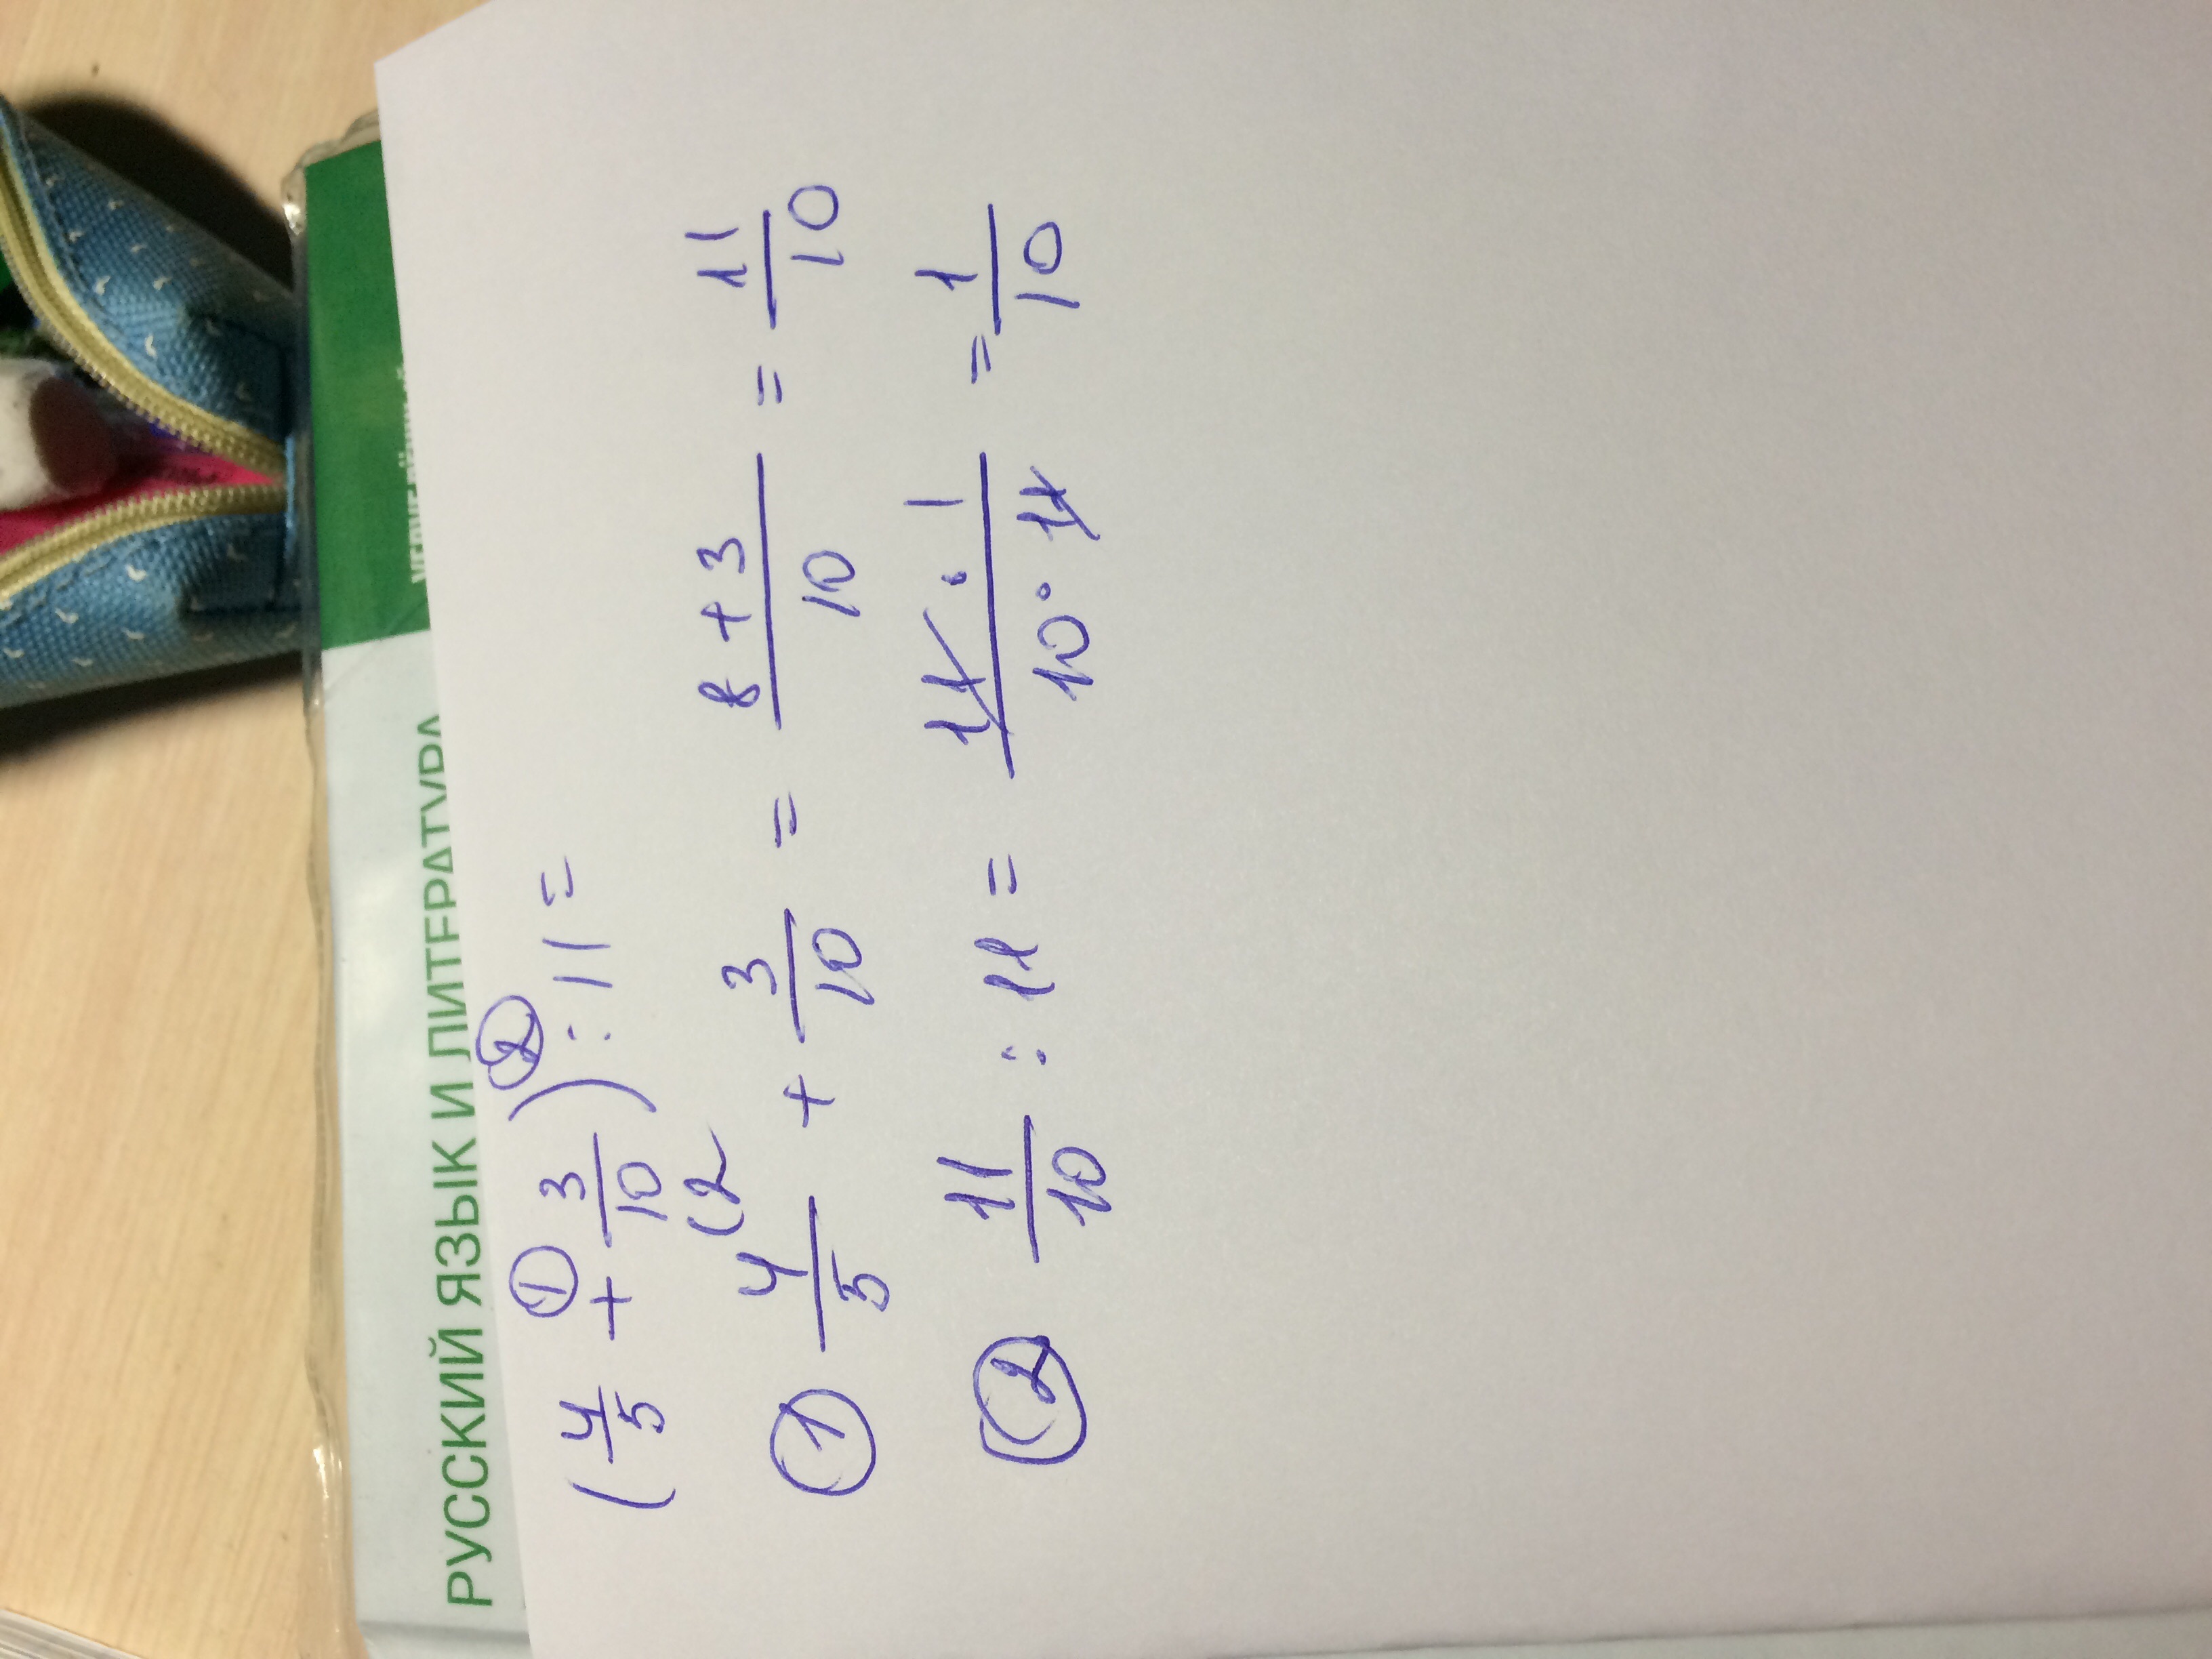 РУССКИЙ ЯЗЫК И ЛИТЕРАТУРА
(4/5 + ① 3/10) ② : 11 =
① 4/5 (2 + 3/10 = 8 + 3/10 = 11/10
② 11/10 : 11 = 11 · 1/10 · 11 = 1/10